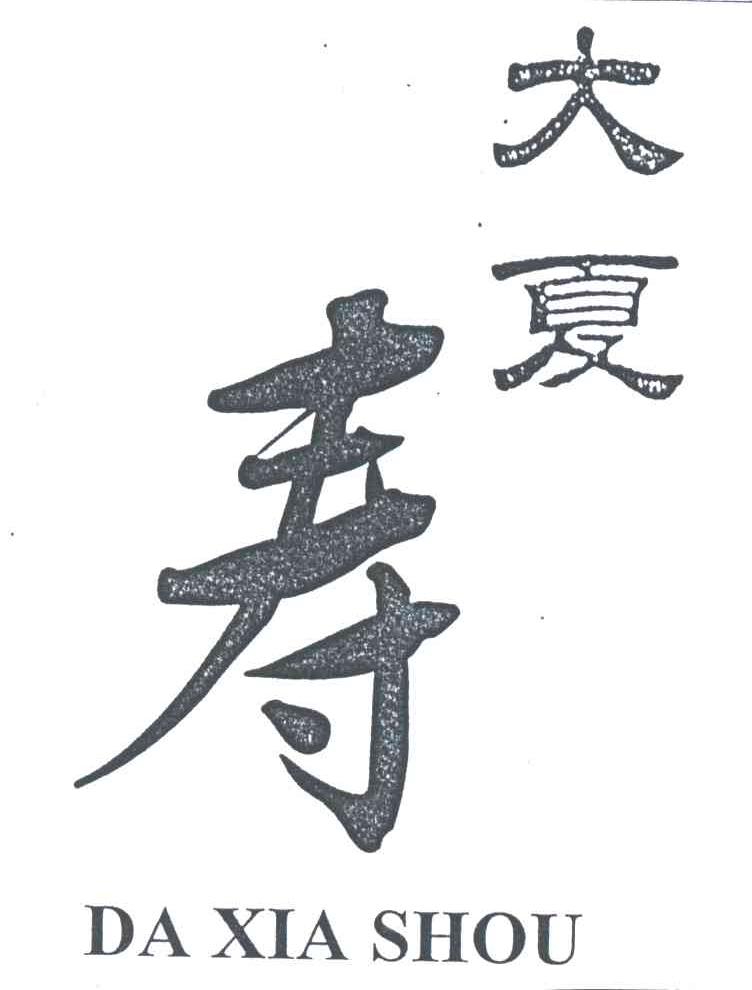 大夏
寿
DA XIA SHOU